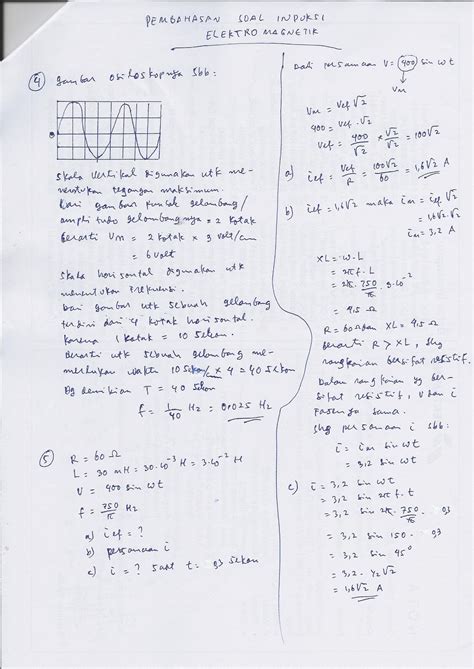 PEMBAHASAN SOAL INDUKSI
ELEKTROMAGNETIK
4) Gambar osiloskopnya sbb:
Skala vertikal digunakan utk me-
nentukan tegangan maksimum.
Dari gambar puncak gelombang/
amplitudo gelombangnya = 2 kotak
berarti Vm = 2 kotak x 3 volt/cm
= 6 volt
Skala horisontal digunakan utk
menentukan frekuensi.
Dari gambar utk sebuah gelombang
terdiri dari 4 kotak horisontal.
karena 1 kotak = 10 sekon.
Berarti utk sebuah gelombang me-
merlukan waktu 10 sekon/cm x 4 = 40 sekon
Dg demikian T = 40 sekon
f = 1/40 Hz = 0,025 Hz
5) R = 60 Ω
L = 30 mH = 30.10⁻³ H = 3.10⁻² H
V = 400 sin ωt
f = 750/π Hz
a) ief = ?
b) persamaan i
c) i = ? saat t = 93 sekon
Dari persamaan V = 400 sin ωt
Vm
Vm = Vef √2
400 = Vef √2
Vef = 400/√2 x √2/√2 = 100√2
a) ief = Vef/R = 100√2/60 = 1,6√2 A
b) ief = 1,6√2 maka im = ief √2
= 1,6√2.√2
im = 3,2 A
XL = ω.L
= 2πf.L
= 2π.750/π.9.10⁻²
= 45 Ω
R = 60 Ω dan XL = 45 Ω
berarti R > XL, shg
rangkaian bersifat resistif.
Dalam rangkaian yg ber-
sifat resistif, V dan i
fasenya sama.
shg persamaan i sbb:
i = im sin ωt
= 3,2 sin ωt
c) i = 3,2 sin ωt
= 3,2 sin 2π.f.t
= 3,2 sin 2π.750/π.93
= 3,2 sin 150.93
= 3,2 sin 45°
= 3,2.½√2
= 1,6√2 A